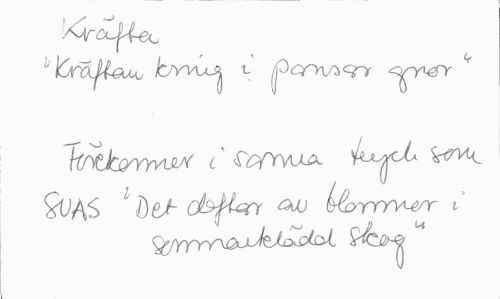 Kräfta
"Kräftan kring i pansar gror"
Förekommer i samma tryck som
SUAS "Det doftar av blommer i
sommarklädd skog"